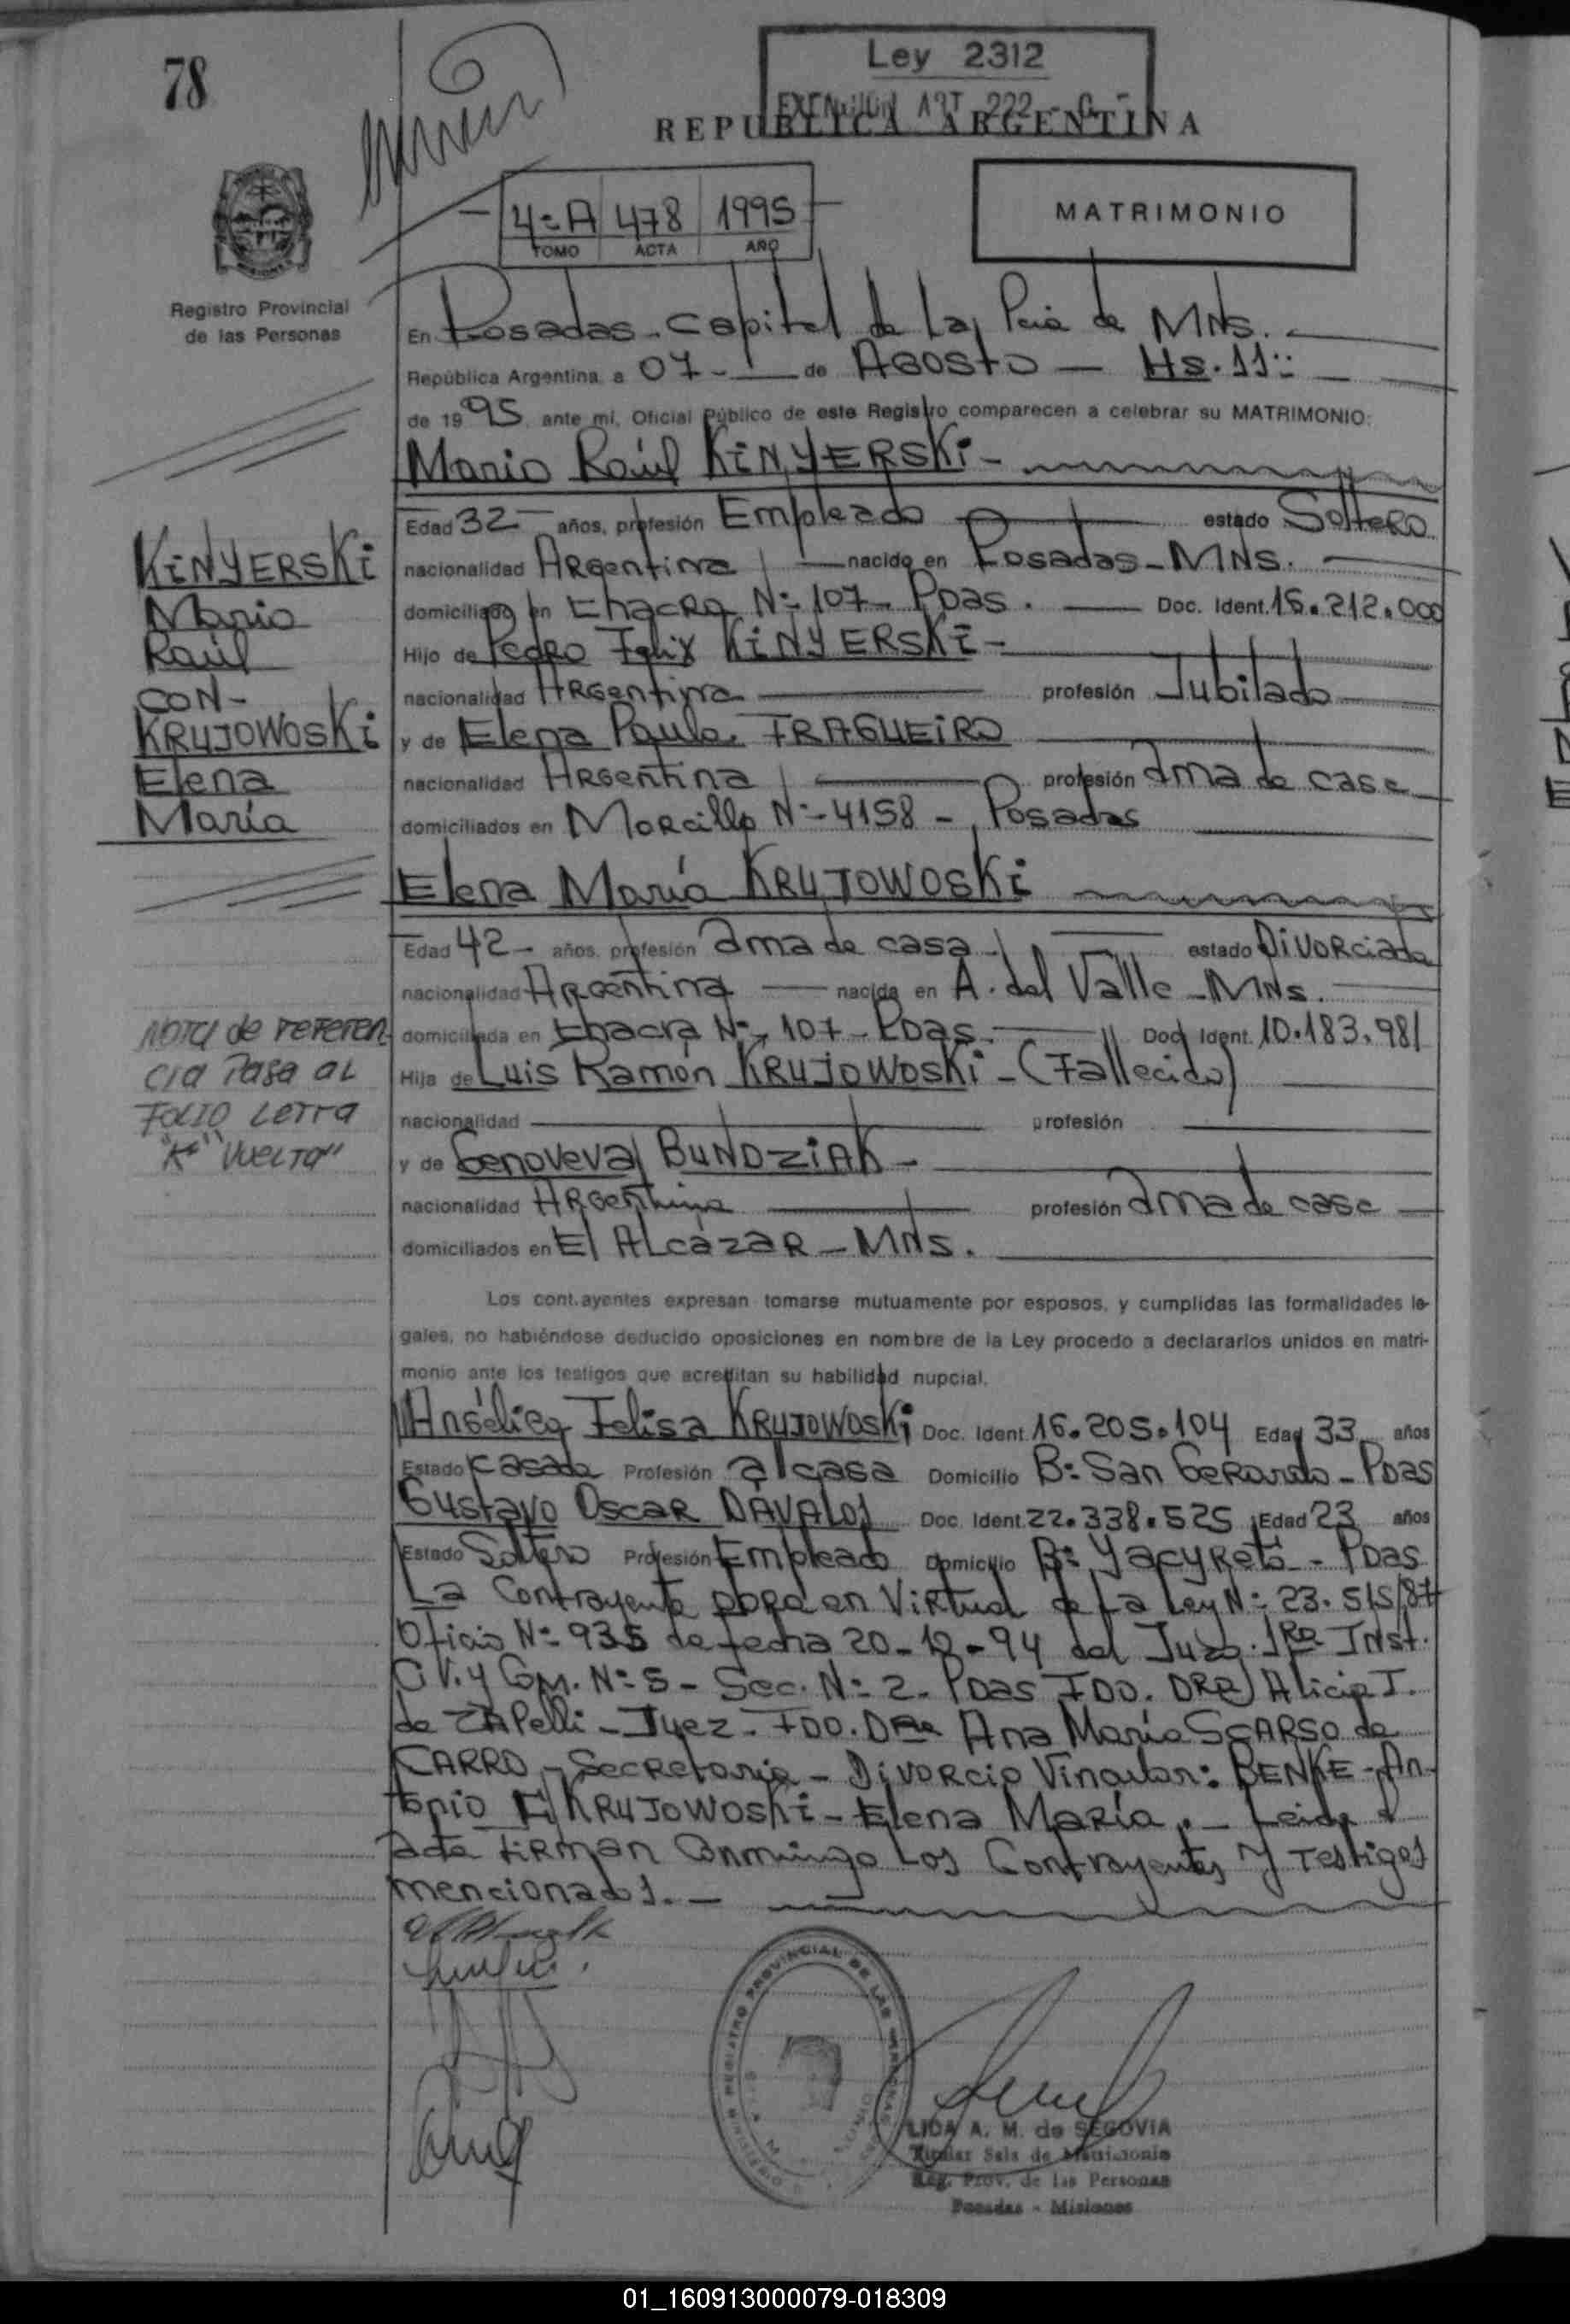 78
Ley 2312
EXENCION ART 222
REPUBLICA ARGENTINA
4º A 478 1995
TOMO ACTA AÑO
MATRIMONIO
Registro Provincial
de las Personas
En Posadas. Capital de La Pcia de MNS.
República Argentina, a 07 - de AGOSTO - HS. 11:
de 1995, ante mi, Oficial Público de este Registro comparecen a celebrar su MATRIMONIO:
Mario Raúl KINYERSKI -
Edad 32 años, profesión Empleado estado SolteRO
nacionalidad ARgentina nacido en Posadas - MNS.
domiciliado en ChacRa Nº 107 - Pdas. Doc. Ident. 16.212.000
Hijo de PedRO Felix KINYERSKI -
nacionalidad ARGentina profesión Jubilado
y de Elena Paula FRAGUEIRO
nacionalidad ARGentina profesión Ama de casa
domiciliados en Morcillo Nº 4158 - Posadas
Elena María KRUJOWOSKI
Edad 42 - años, profesión Ama de casa estado DivoRciada
nacionalidad ARGentina nacida en A. del Valle - MNS.
domiciliada en Chacra Nº 107 - Pdas. Doc. Ident. 10.183.981
Hija de Luis Ramón KRUJOWOSKI - (Fallecido)
nacionalidad profesión
y de Genoveva BUNDZIAK -
nacionalidad ARGentina profesión Ama de casa
domiciliados en El ALcázaR - MNS.
KINYERSKI
Mario
Raúl
CON -
KRUJOWOSKI
Elena
María
NOTA de referen
cia Pasa AL
FOLIO LETRA
"K" VUELTA"
Los contrayentes expresan tomarse mutuamente por esposos, y cumplidas las formalidades le-
gales, no habiéndose deducido oposiciones en nombre de la Ley procedo a declararlos unidos en matri-
monio ante los testigos que acreditan su habilidad nupcial.
Angélica Felisa KRUJOWOSKI Doc. Ident. 16.205.104 Edad 33 años
Estado casada Profesión a/casa Domicilio Bº San GeRardo - Pdas
Gustavo OscaR DÁVALOS Doc. Ident. 22.338.525 Edad 23 años
Estado Soltero Profesión Empleado Domicilio Bº YacyRetá - Pdas
La Contrayente en ViRtud de La Ley Nº 23.515/87
Oficio Nº 935 de fecha 20-12-94 del Juzg. 1Ra Inst.
CiV. y Com. Nº 5 - Sec. Nº 2 - Pdas FDO. DRa Alicia I.
de ZAPelli - Juez - FDO. DRa Ana María SCARSO de
CARRO - SecRetaria - DivoRcio Vincular: BENKE - An-
tonio C/ KRUJOWOSKI - Elena María. - Leida el
acta firman Conmigo Los Contrayentes y Testigos
mencionados. -
REGISTRO PROVINCIAL DE LAS PERSONAS
LIDA A. M. de SEGOVIA
Titular Sala de Matrimonio
Reg. Prov. de las Personas
Posadas - Misiones
01_160913000079-018309